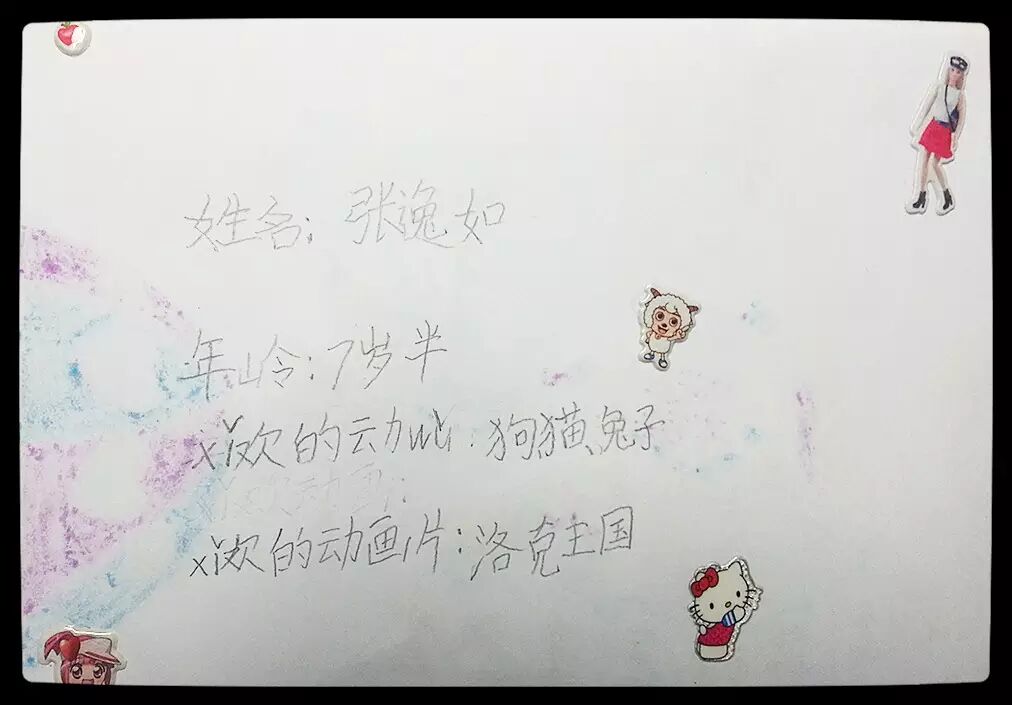 姓名：张逸如
年龄：7岁半
xǐ欢的动wù：狗猫、兔子
xǐ欢的动画片：洛克王国